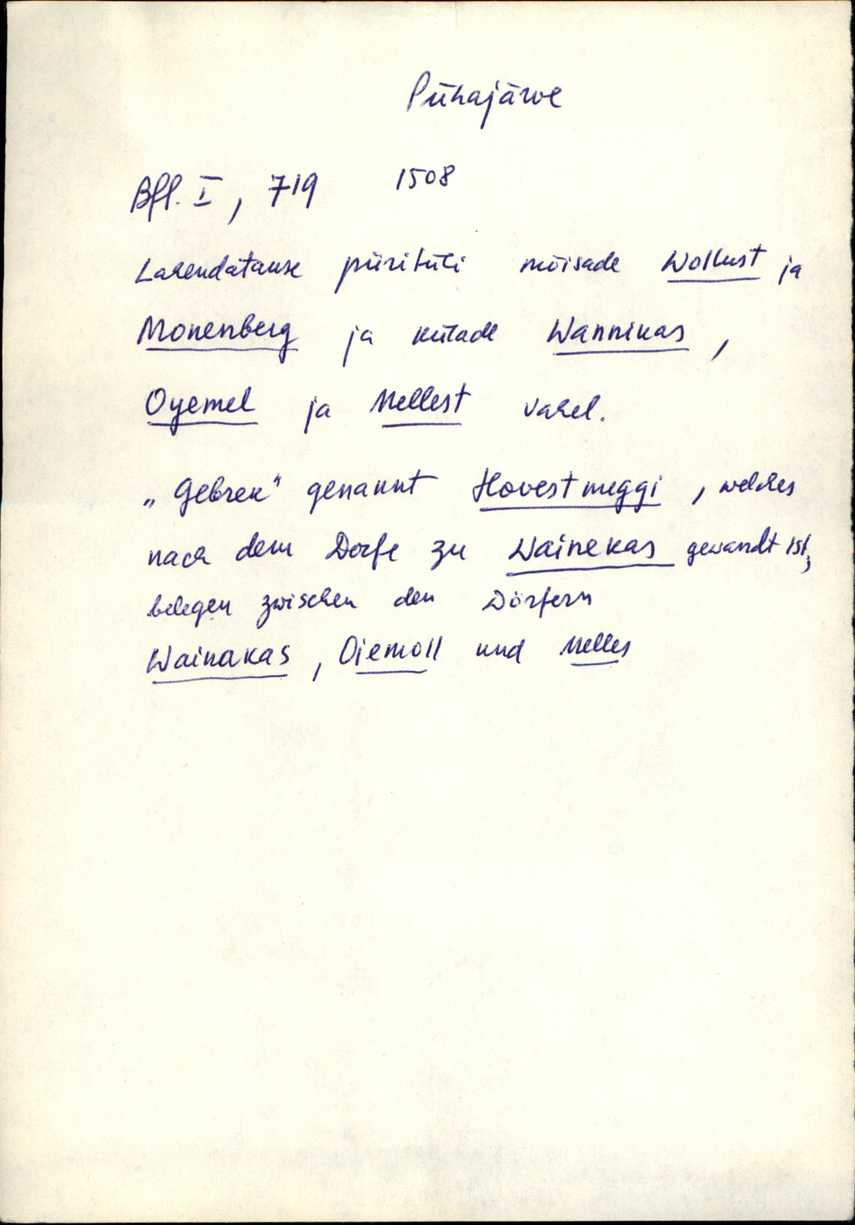 Pühajärve
Bfl. I, 719 1508
Lahendatakse piiritüli mõisade Wollust ja
Monenberg ja külade Wannikas,
Oyemel ja Mellest vahel.
„Gebrek" genannt Hovestmeggi, welches
nach dem Dorfe zu Wainekas gewandt ist,
belegen zwischen den Dörfern
Wainakas, Oiemoll und Melles